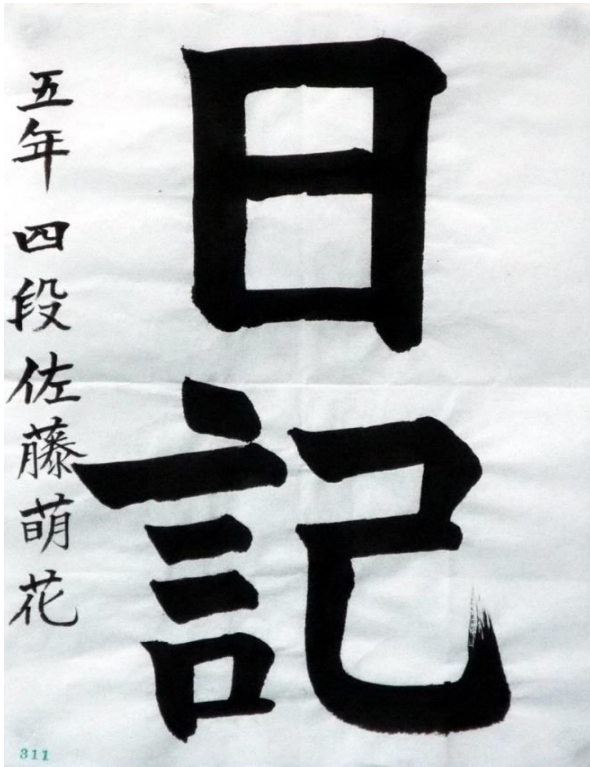 日記
五年 四段 佐藤萌花
311